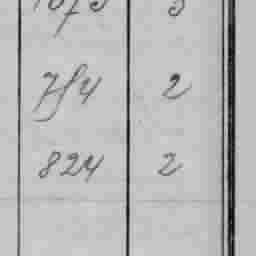 1075 3
754 2
824 2